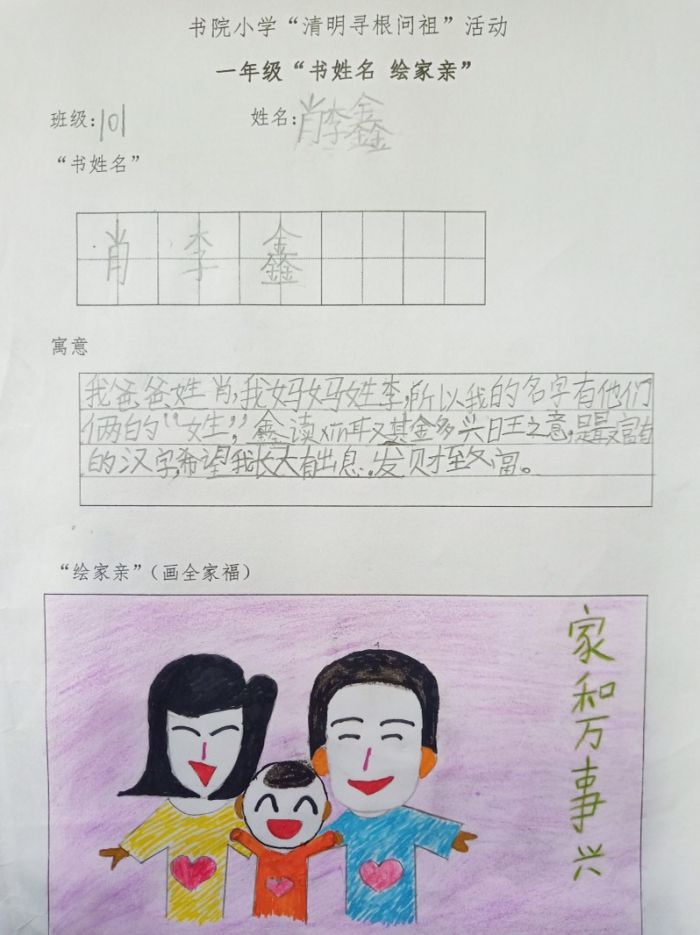 书院小学“清明寻根问祖”活动
一年级“书姓名 绘家亲”
班级:101 姓名:肖李鑫
“书姓名”
肖 李 鑫
寓意
我爸爸姓肖,我妈妈姓李,所以我的名字有他们
俩的“姓”,鑫读xīn取其金多兴旺之意,是最富有
的汉字,希望我长大有出息,发财致富。
“绘家亲”(画全家福)
家和万事兴